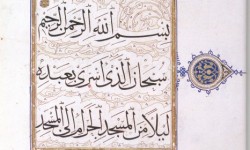 بسم الله الرحمن الرحيم
سبحان الذي أسرى بعبده
ليلا من المسجد الحرام إلى المسجد